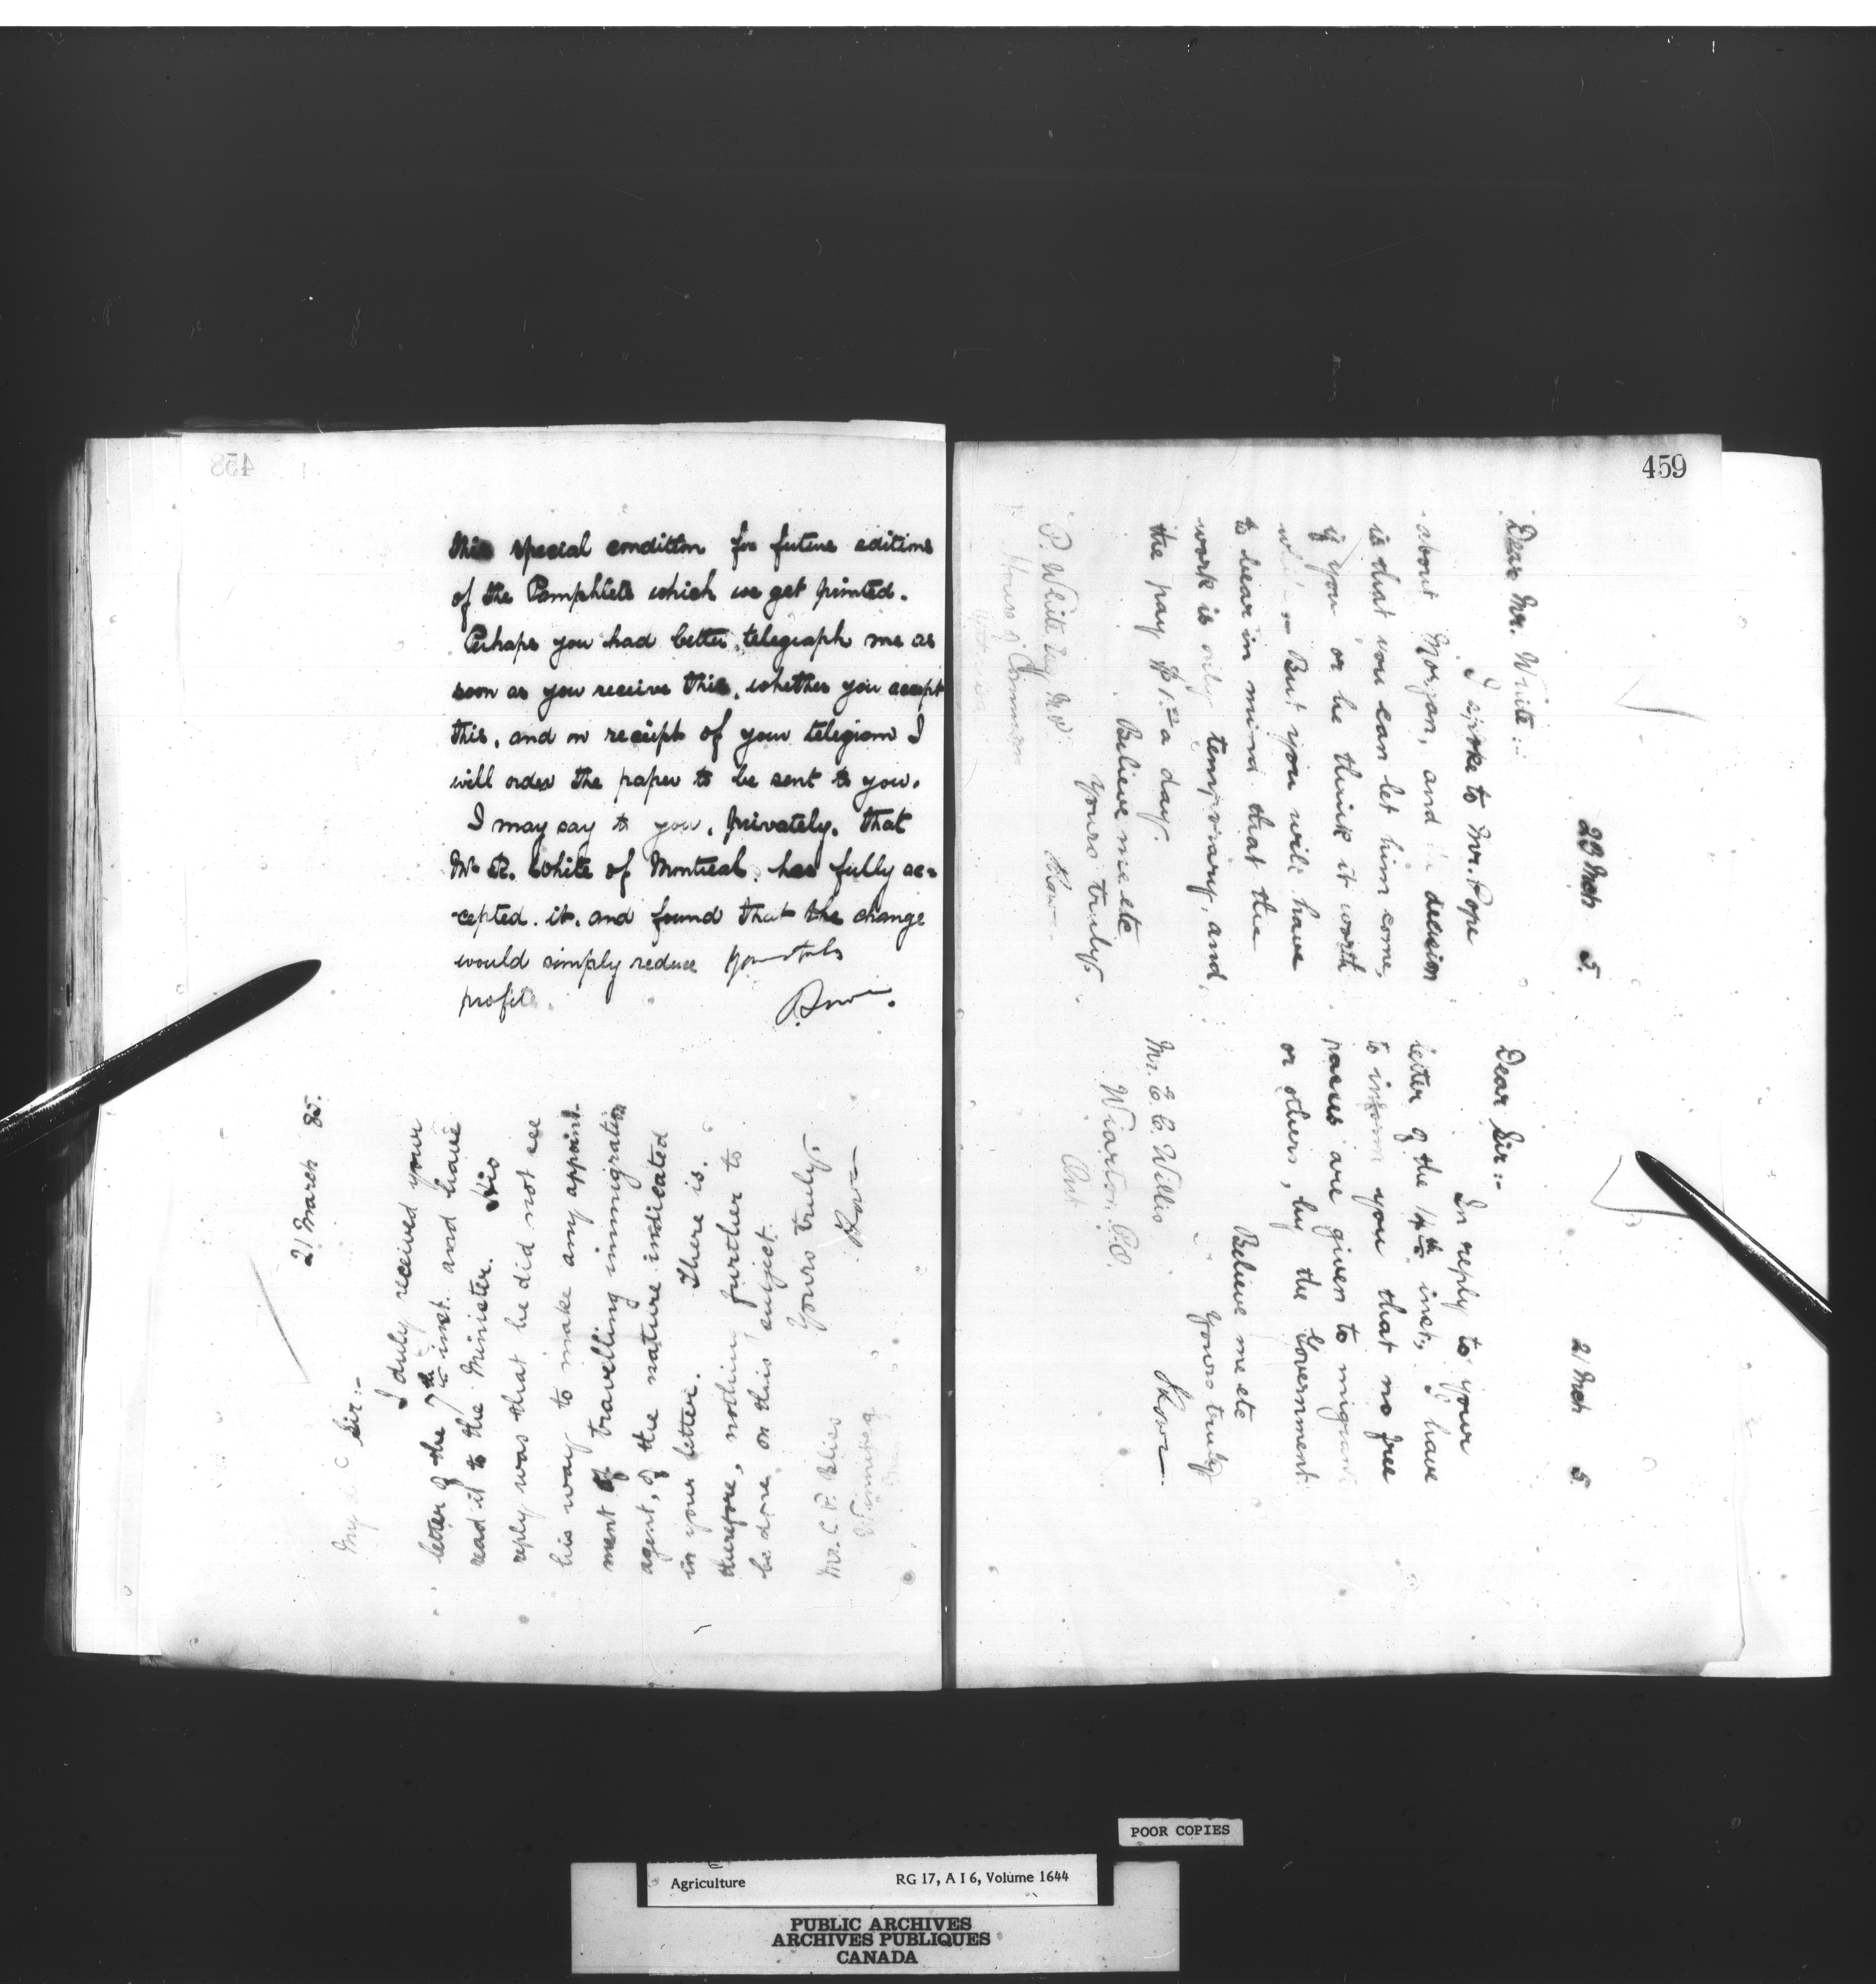 458
this special condition for future editions
of the Pamphlets which we get printed.
Perhaps you had better telegraph me as
soon as you receive this, whether you accept
this, and on receipt of your telegram I
will order the paper to be sent to you.
I may say to you, privately, that
Mr R. White of Montreal, has fully ac=
cepted it, and found that the change
would simply reduce
profit.
21 March 85.
My d Sir:-
I duly received your
letter of the 7th inst. and have
read it to the Minister. His
reply was that he did not see
his way to make any appoint-
ment of travelling immigration
agent, of the nature indicated
in your letter. There is,
therefore, nothing further to
be done on this subject.
Yours truly,
Lowe
Mr. C. P. Bliss
Winnipeg
459
23 Mch 5.
Dear Mr. White:-
I spoke to Mr. Pope
about Morgan, and the decision
is that you can let him come,
if you or he think it worth
while. But you will have
to bear in mind that the
work is only temporary, and
the pay $1.50 a day.
Believe me etc
Yours truly,
Lowe
P. White Esq M.P.
House of Commons
21 Mch 5
Dear Sir:-
In reply to your
letter of the 14th inst, I have
to inform you that no free
passes are given to migrants
or others, by the Government
Believe me etc
Yours truly
J Lowe
Mr. E. C. Willis
Wiarton P.O.
Ont
POOR COPIES
Agriculture RG 17, A I 6, Volume 1644
PUBLIC ARCHIVES
ARCHIVES PUBLIQUES
CANADA